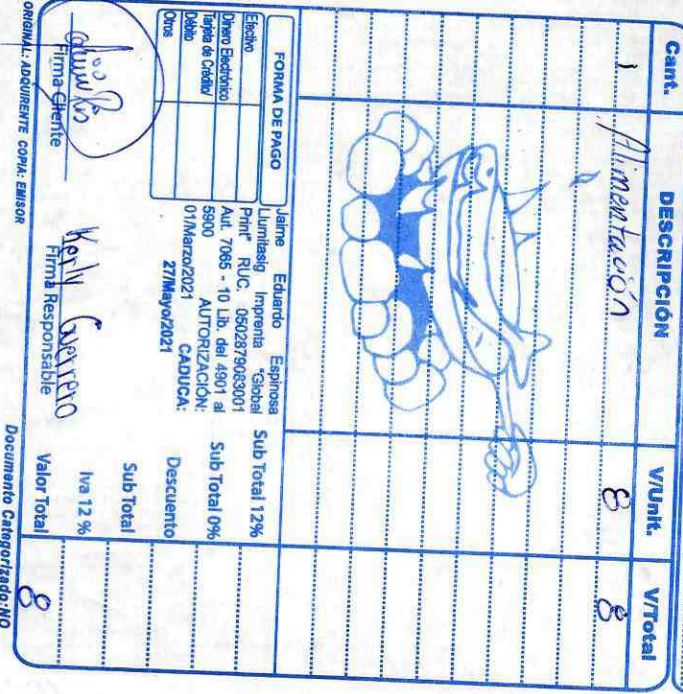 Cant. DESCRIPCIÓN V/Unit. V/Total
1 Alimentación 8 8
FORMA DE PAGO
Efectivo
Dinero Electrónico
Tarjeta de Crédito
Débito
Otros
Jaime Eduardo Espinosa
Llumitasig Imprenta "Global
Print" RUC. 0502879083001
Aut. 7065 - 10 Lib. del 4901 al
5900 AUTORIZACIÓN:
01/Marzo/2021 CADUCA:
27/Mayo/2021
Sub Total 12%
Sub Total 0%
Descuento
Sub Total
Iva 12 %
Valor Total 8
Firma Cliente
Kerly Guerrero
Firma Responsable
ORIGINAL: ADQUIRENTE COPIA: EMISOR
Documento Categorizado: NO